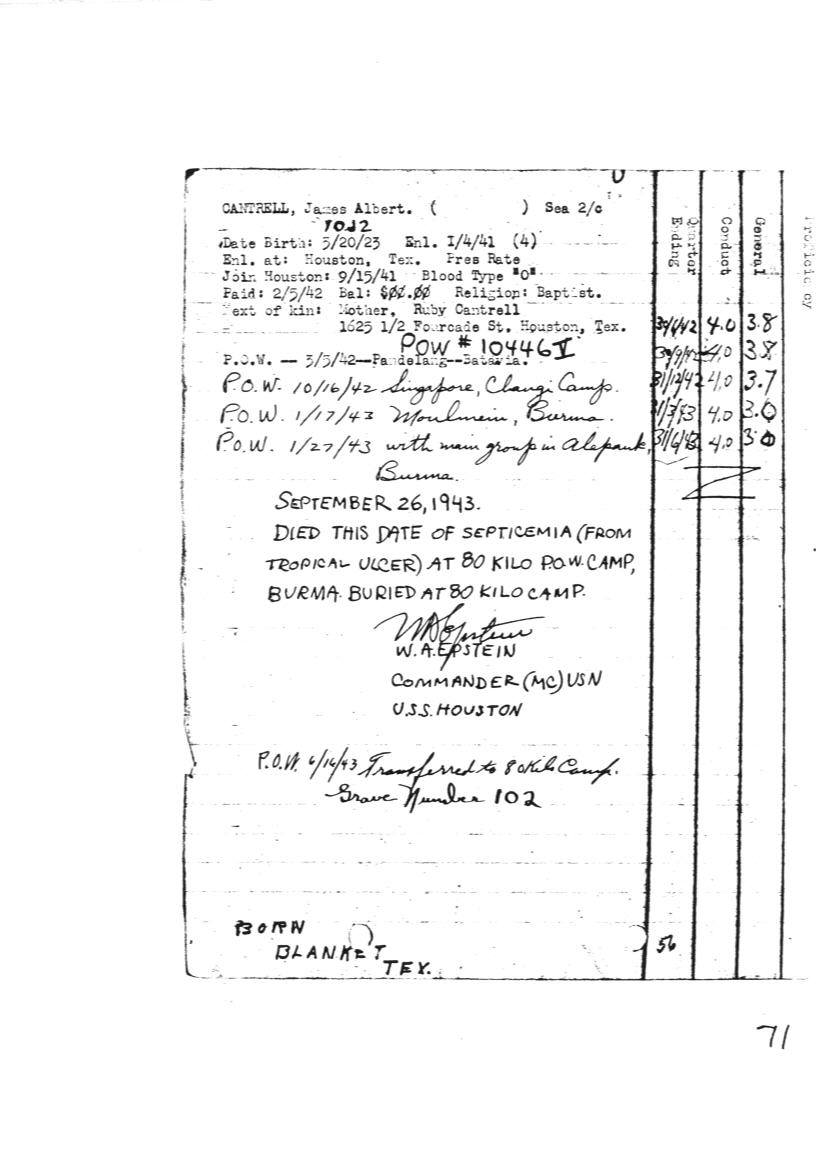 CANTRELL, James Albert. ( ) Sea 2/c
Date Birth: 3/20/23 Enl. I/4/41 (4)
Enl. at: Houston, Tex. Pres Rate
Join Houston: 9/15/41 Blood Type "O"
Paid: 2/5/42 Bal: $00.00 Religion: Baptist.
Next of kin: Mother, Ruby Cantrell
1625 1/2 Fourcade St. Houston, Tex.
POW # 10446
P.O.W. -- 3/3/42--Pandelang--Batavia.
P.O.W. 10/16/42 Singapore, Changi Camp.
P.O.W. 1/17/43 Moulmein, Burma.
P.O.W. 1/27/43 with main group in Alepauk,
Burma.
SEPTEMBER 26, 1943.
DIED THIS DATE OF SEPTICEMIA (FROM
TROPICAL ULCER) AT 80 KILO P.O.W. CAMP,
BURMA. BURIED AT 80 KILO CAMP.
WAEpstein
W. A. EPSTEIN
COMMANDER (MC) USN
U.S.S. HOUSTON
P.O.W. 6/16/43 Transferred to 80 Kilo Camp.
Grave Number 102
BORN
BLANKET
TEX.
Quarter Ending Conduct General
30/6/42 4.0 3.8
30/9/42 4.0 3.8
31/12/42 4.0 3.7
31/3/43 4.0 3.0
31/6/43 4.0 3.0
56
71